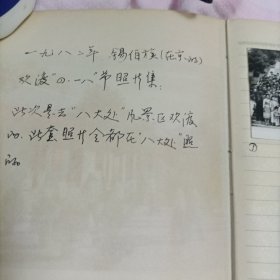 一九八二年 锡伯族(在京的)
欢渡"四.一八"节照片集.
此次是去"八大处"风景区欢渡
的.此套照片全都在"八大处"照
的.
①